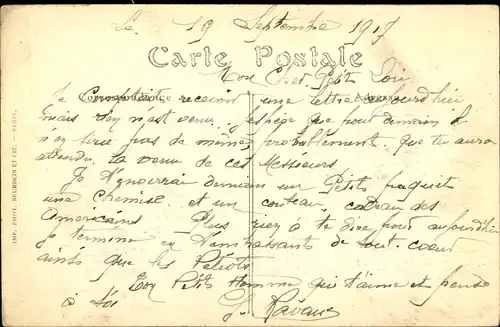 Le 19 Septembre 1917
Carte Postale
Mon Cher Petit Loui
Correspondance Adresse
Je comptait recevoir une lettre aujourdhui
mais rien n'est venu. j'espère que pour demain il
n'en sera pas de même probablement que tu aura
attendu la venue de ces Messieurs
Je t'envoirrai demain un Petit paquet
une chemise et un couteau cadeau des
Americains Plus rien à te dire pour aujourdhui
Je termine en t'embrassant de tout coeur
ainsi que les Petiots.
Ton Petit Homme qui t'aime et pense
à toi G. Ravaux
IMP. PHOT. NEURDEIN ET CIE. — PARIS.